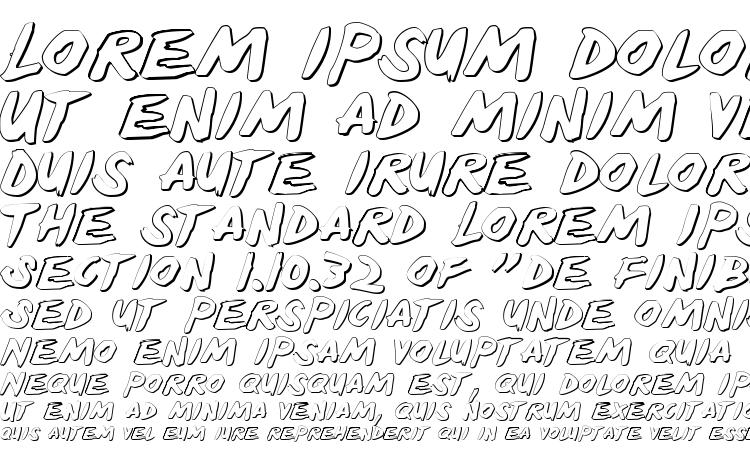 LOREM IPSUM DOLO
UT ENIM AD MINIM VE
DUIS AUTE IRURE DOLOR
THE STANDARD LOREM IPS
SECTION 1.10.32 OF "DE FINIB
SED UT PERSPICIATIS UNDE OMNI
NEMO ENIM IPSAM VOLUPTATEM QUIA
NEQUE PORRO QUISQUAM EST, QUI DOLOREM IP
UT ENIM AD MINIMA VENIAM, QUIS NOSTRUM EXERCITATIO
QUIS AUTEM VEL EUM IURE REPREHENDERIT QUI IN EA VOLUPTATE VELIT ESSE